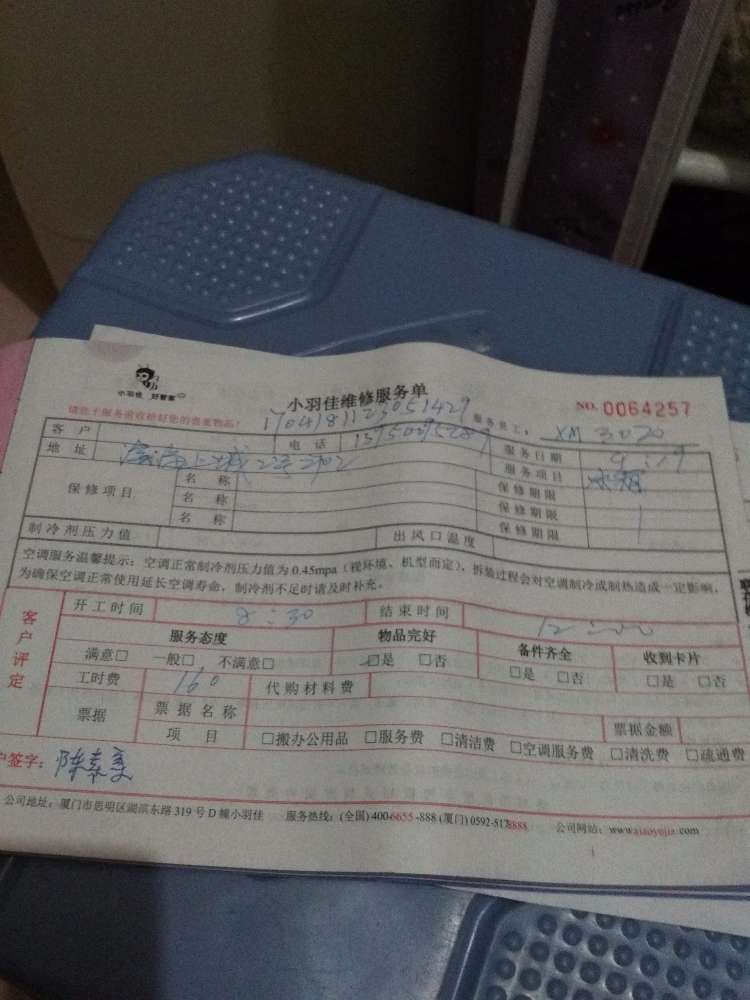 小羽佳 好管家
小羽佳维修服务单
NO. 0064257
请您于服务前收拾好您的贵重物品!
1704181123051429
服务员工: XM 3070
客户 电话 服务日期 4:19
地址 2号 服务项目
保修项目 名称 保修期限
名称 保修期限
名称 保修期限
制冷剂压力值 出风口温度
空调服务温馨提示:空调正常制冷剂压力值为0.45mpa(视环境、机型而定),拆装过程会对空调制冷或制热造成一定影响,
为确保空调正常使用延长空调寿命,制冷剂不足时请及时补充。
客户评定
开工时间 8:30 结束时间 12:00
服务态度 物品完好 备件齐全 收到卡片
满意□ 一般□ 不满意□ □是 □否 □是 □否 □是 □否
工时费 160 代购材料费
票据 票据名称 票据金额
项目 □搬办公用品 □服务费 □清洁费 □空调服务费 □清洗费 □疏通费
户签字:
公司地址:厦门市思明区湖滨东路319号D幢小羽佳 服务热线:(全国)400-6655-888 (厦门)0592-5178888 公司网站:www.xiaoyujia.com